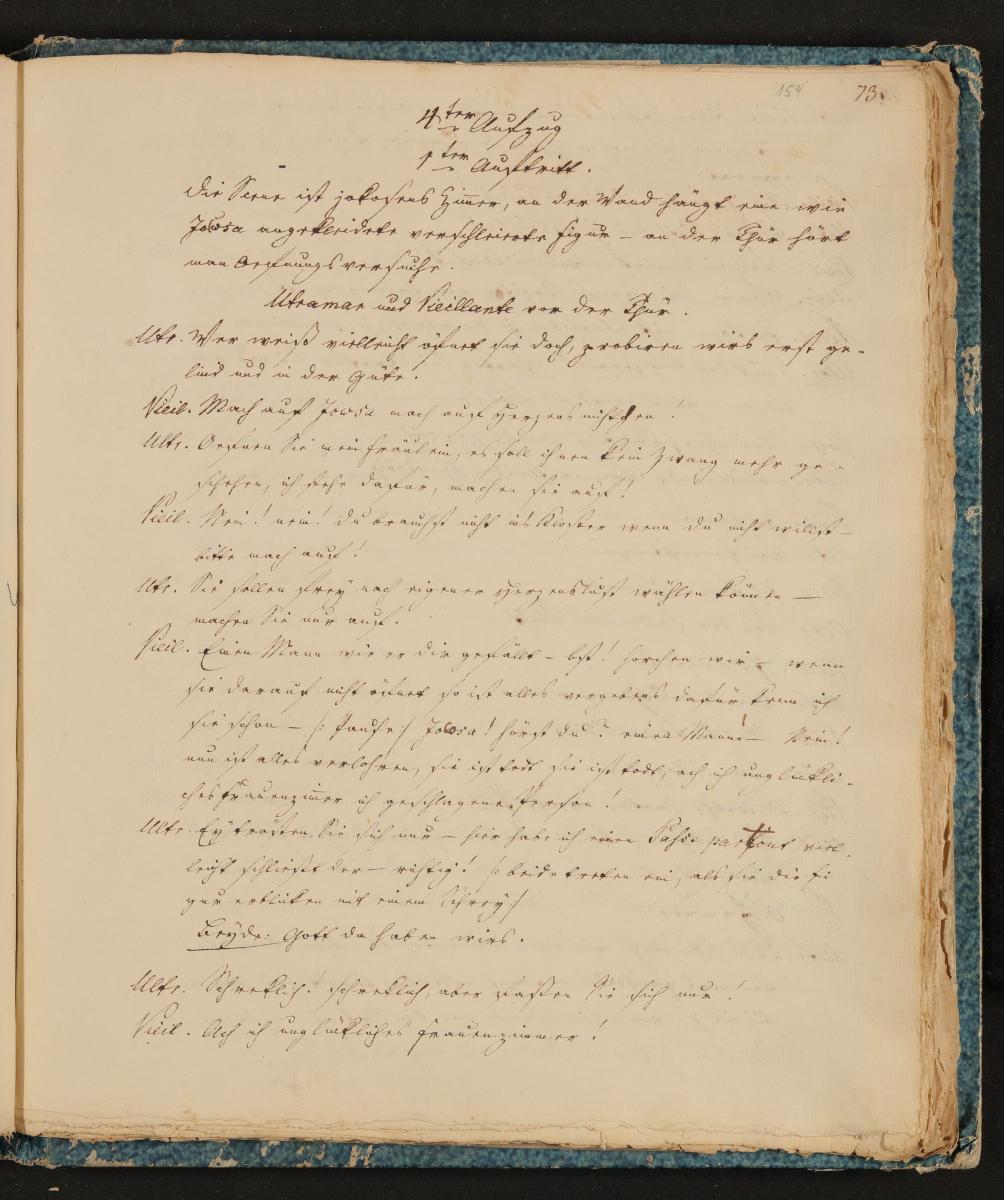 154 73.
4ter Aufzug
1ter Auftritt.
Die Scene ist jokosens Zimmer, an der Wand hängt eine wie
Jocosa angekleidete verschleierte Figur – an der Thür hört
man Oefnungsversuche.
Utramar und Vieillante vor der Thür.
Utr. Wer weiß vielleicht öfnet sie doch, probiren wirs erst ge-
lind und in der Güte.
Vieil. Mach auf Jocosa mach auf Herzens nichtchen!
Ultr. Oefnen Sie mein Fräulein, es soll ihnen kein Zwang mehr ge-
schehen, ich stehe dafür, machen sie auf!
Vieil. Nein! nein! du brauchst nicht ins Kloster wenn du nicht willst –
bitte mach auf!
Utr. Sie sollen frey nach eigener Herzenslust wählen können –
machen Sie nur auf.
Vieil. Einen Mann wie er dir gefällt – bst! horchen wir – wenn
sie darauf nicht öfnet so ist alles vergebens dafür kenn ich
sie schon – /: Pause :/ Jocosa! hörst du? einen Mann! – Nein!
nun ist alles verlohren, sie ist todt sie ist todt, ach ich unglückli-
ches Frauenzimer ich geschlagene Person!
Ultr. Ey trösten Sie sich nur – hier habe ich einen Passe partout viel-
leicht schließt der – richtig! /: beide treten ein, als sie die Fi
gur erblicken mit einem Schrey :/
Beyde: Gott da haben wirs.
Ultr. Schreklich! schreklich, aber faßen Sie sich nur!
Vieil. Ach ich unglückliches Frauenzimmer!